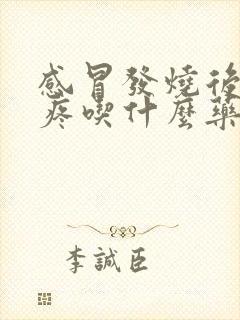 感冒發燒後
疼喫什麼藥
李誠臣